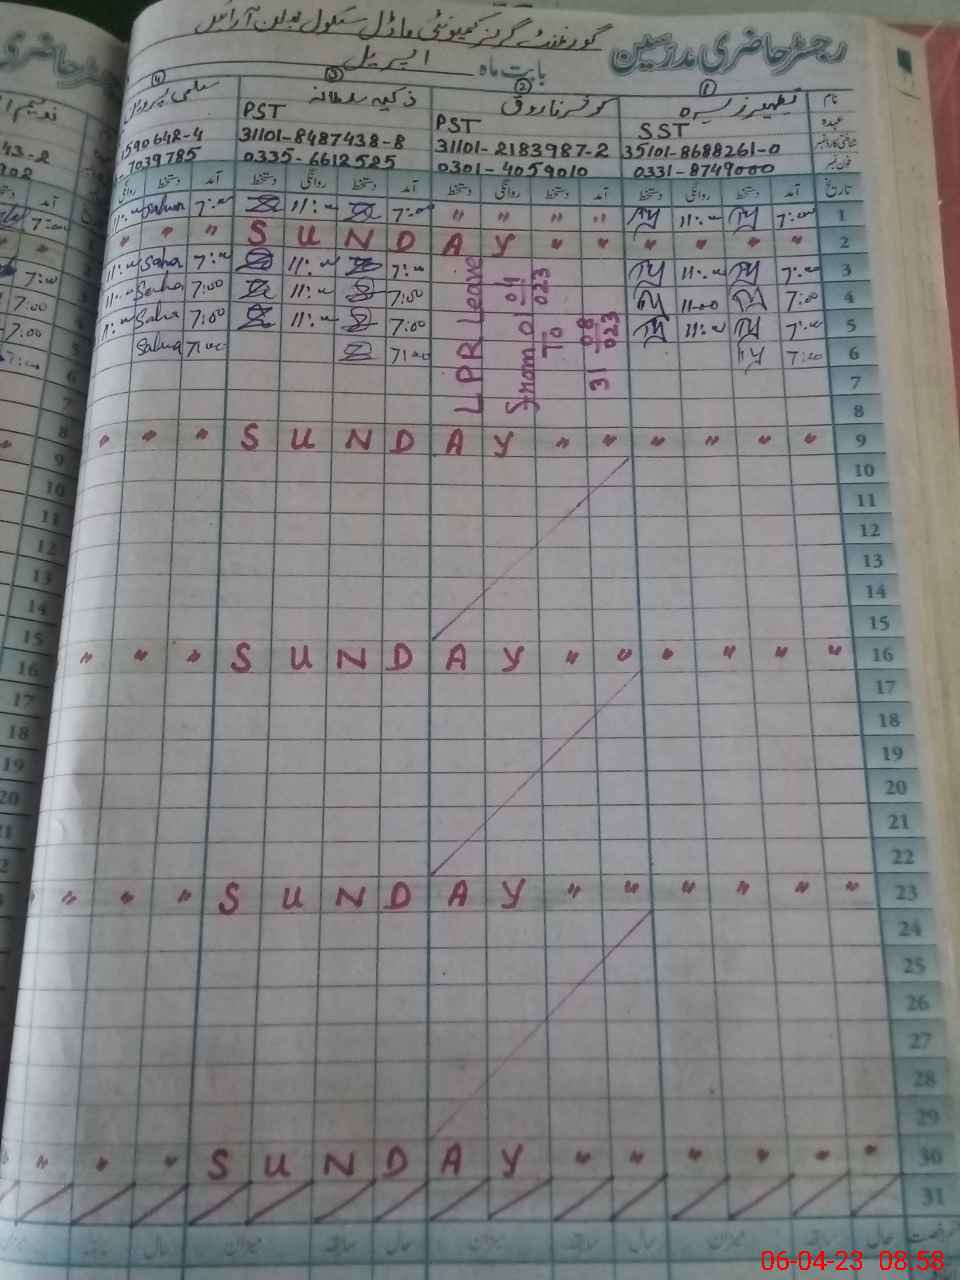 رجسٹر حاضری مدرسین گورنمنٹ گرلز کمیونٹی ماڈل سکول
بابت ماہ اپریل
نام ① ② کوثر فاروق ③ ذکیہ سلطانہ ④ سلمی پروین
عہدہ SST PST PST
35101-8688261-0 31101-2183987-2 31101-8487438-8 1590642-4
فون نمبر 0331-8749000 0301-4059010 0335-6612525 7039785
تاریخ آمد دستخط روانگی دستخط آمد دستخط روانگی دستخط آمد دستخط روانگی دستخط آمد دستخط روانگی
1 7:00 11:00 " " " " 7:00 11:00 7:00 Salma 11:00
2 " " " " " " S U N D A Y " " "
3 7:00 11:00 7:00 11:00 7:00 11:00
4 7:00 11:00 7:00 11:00 7:00 11:00
5 7:00 11:00 7:00 11:00 7:00 11:00
6 7:00 7:00 7:00 Salma
LPR Leave
From 01 04 023
To
31 08 023
7
8
9 " " " " " " S U N D A Y " " "
10
11
12
13
14
15
16 " " " " " " S U N D A Y " " "
17
18
19
20
21
22
23 " " " " " " S U N D A Y " " "
24
25
26
27
28
29
30 " " " " " " S U N D A Y " " "
31
حال سابقہ میزان حال سابقہ میزان حال سابقہ میزان حال سابقہ میزان
06-04-23 08:58